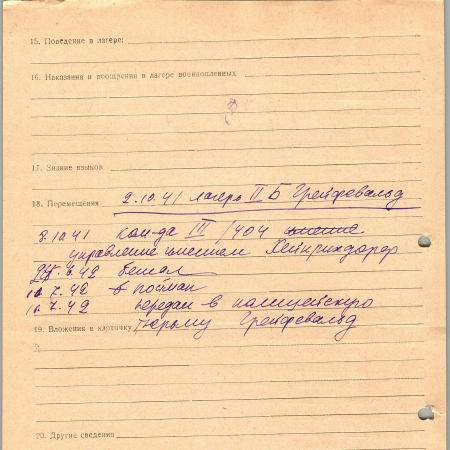 15. Поведение в лагере:
16. Наказания и поощрения в лагере военнопленных
17. Знание языков
18. Перемещения 2.10.41 лагерь II Б Грейфевальд
8.10.41 ком-да III/404 имение
управление имением
6.42 бежал
10.7.42 пойман
10.7.42 передан в полицейскую
19. Вложения в карточку тюрьму Грейфевальд
20. Другие сведения